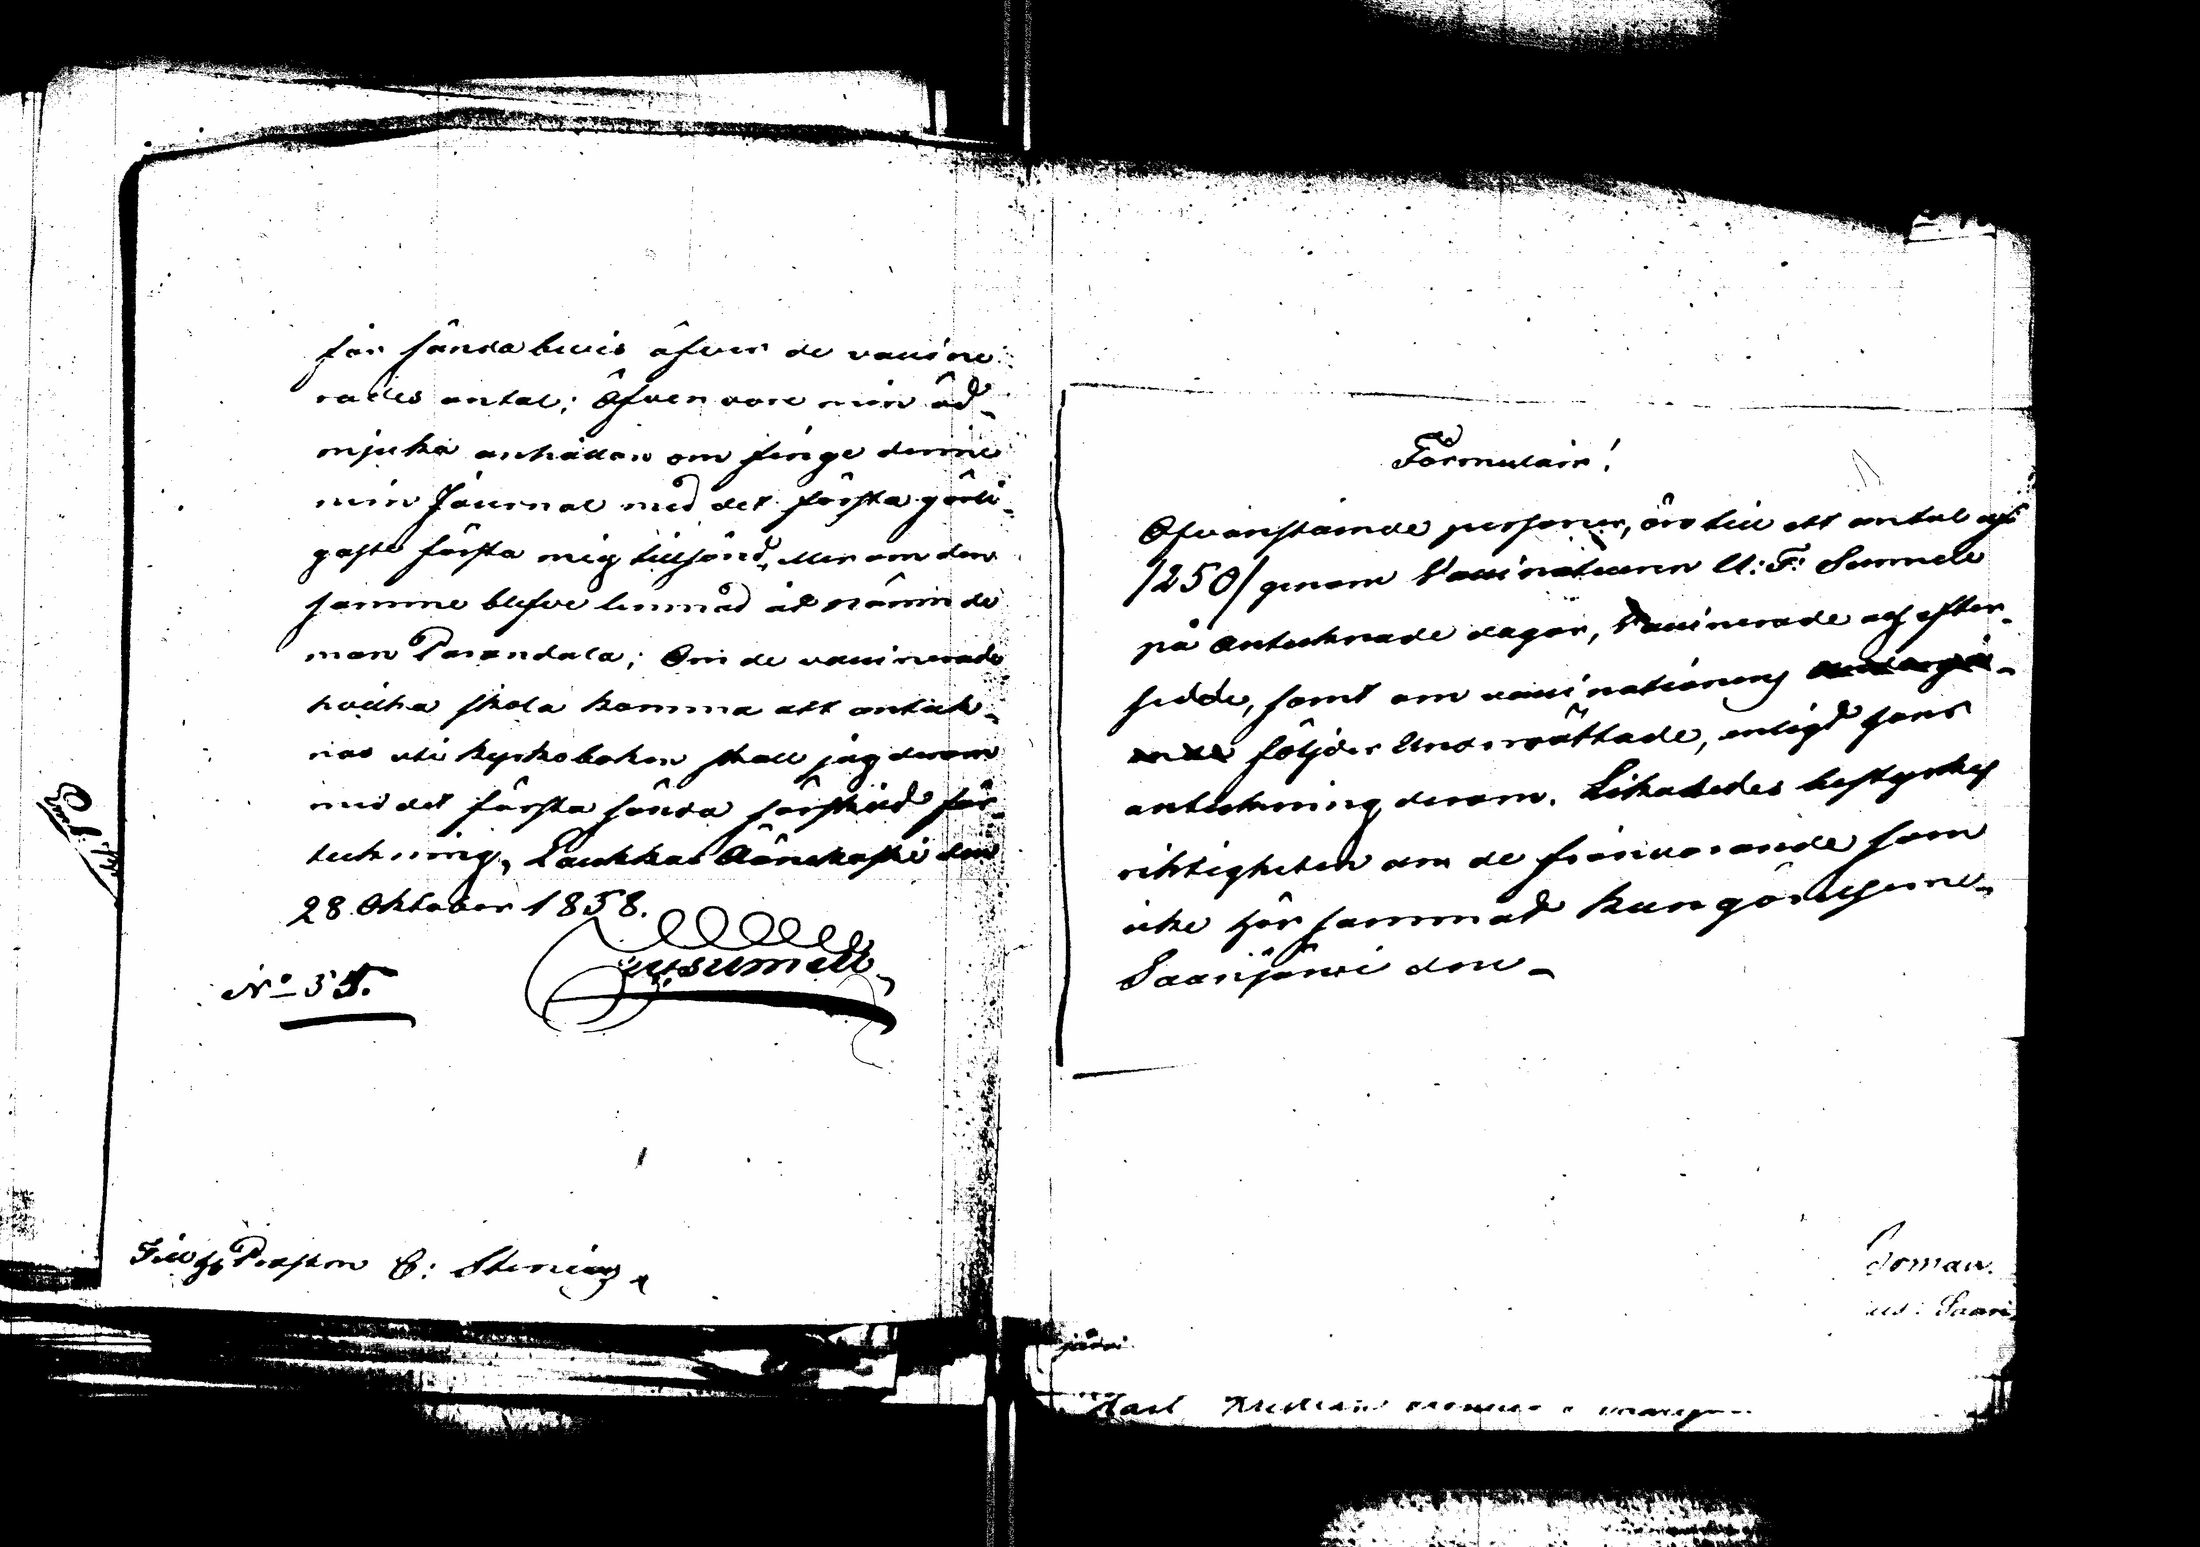 för sända bevis öfver de vaccine
rades antal; Äfven vore min öd-
mjuka anhållan om finge denne
min Journal med det första görli-
gaste första mig tillsänd, Men om den
samme blefve lemnad åt nämnde
man Parandala; Om de vaccinerade
hvilka skola komma att anteck-
nas uti kyrkoboken skall jag derom
med det första sända särskild för
teckning, Laukkas Äänekoski den
28 Oktober 1858.
No 35.
Sumell
Till Prosten C: Stenius
Formulair!
Ofvanstående personer, äro till ett antal af
/250/ genom Vaccinateuren A: F: Sumele
på Antecknade dagar, Vaccinerade och efter-
sedde, samt om vaccinationens
följder Underrättade, enligt hans
anteckning derom. Likaledes bestyrkes
riktigheten om de frånvarande som
icke hör sammat kungörelserne.
Saarijärvi den
Saari
järvi
Karl